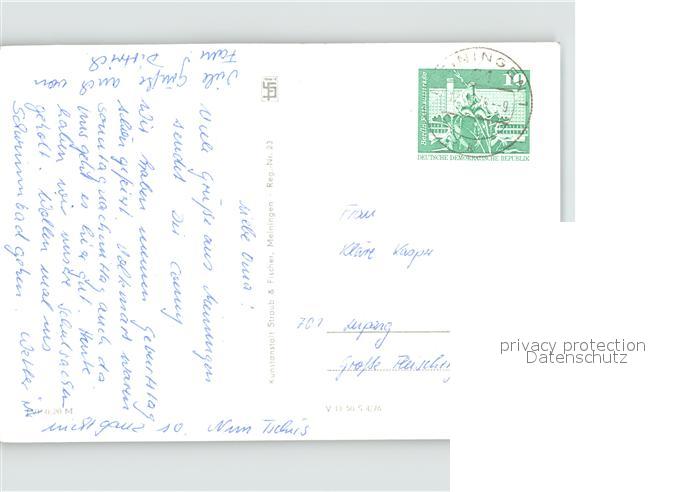 Liebe Oma!
Viele Grüße aus Meiningen
sendet Dir Conny
Wir haben meinen Geburtstag
schön gefeiert. Volkmars waren
Sonntagnachmittag auch da.
Uns geht es hier gut. Heute
haben wir unsere Schulsachen
geholt. Wollen mal ins
Schwimmbad gehen. Wetter
nicht ganz so. Nun Tschüs
Viele Grüße auch von
Fam. Dittrich
Kunstanstalt Straub & Fischer, Meiningen Reg.-Nr. 23
EVP 0,20 M
V 11 50 S 4/76
MEININGEN 1
10
DEUTSCHE DEMOKRATISCHE REPUBLIK
Frau
Kläre Kasper
701 Leipzig
Große
privacy protection
Datenschutz